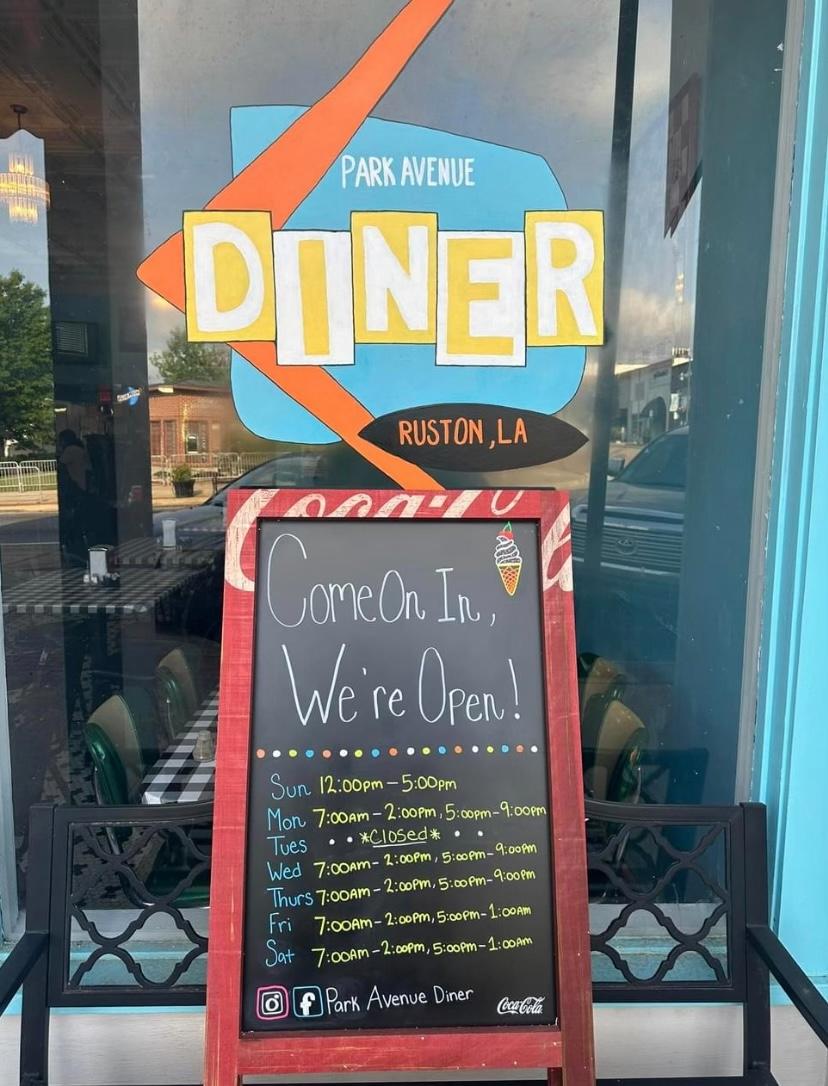 PARK AVENUE
DINER
RUSTON, LA
Coca-Co
Come On In,
We're Open!
Sun 12:00pm - 5:00pm
Mon 7:00AM - 2:00pm, 5:00pm - 9:00pm
Tues • • *Closed* • •
Wed 7:00AM - 2:00pm, 5:00pm - 9:00pm
Thurs 7:00AM - 2:00pm, 5:00pm - 9:00pm
Fri 7:00AM - 2:00pm, 5:00pm - 1:00AM
Sat 7:00AM - 2:00pm, 5:00pm - 1:00AM
Park Avenue Diner
Coca-Cola